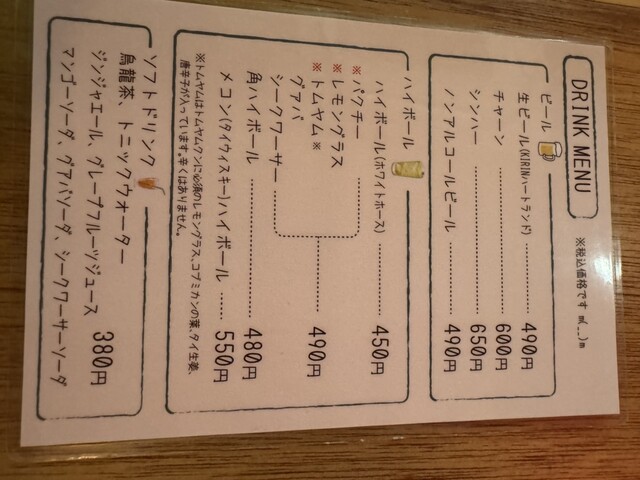 DRINK MENU
※税込価格です m(_ _)m
ビール
生ビール(KIRINハートランド) 490円
チャーン 600円
シンハー 650円
ノンアルコールビール 490円
ハイボール
ハイボール(ホワイトホース) 450円
※パクチー
※レモングラス
※トムヤム※
グアバ
シークワーサー
490円
角ハイボール 480円
メコン(タイウィスキー)ハイボール 550円
※トムヤムはトムヤムクンに必須のレモングラス、コブミカンの葉、タイ生姜、
唐辛子が入っています。辛くはありません。
ソフトドリンク
烏龍茶、トニックウォーター
ジンジャエール、グレープフルーツジュース 380円
マンゴーソーダ、グアバソーダ、シークワーサーソーダ